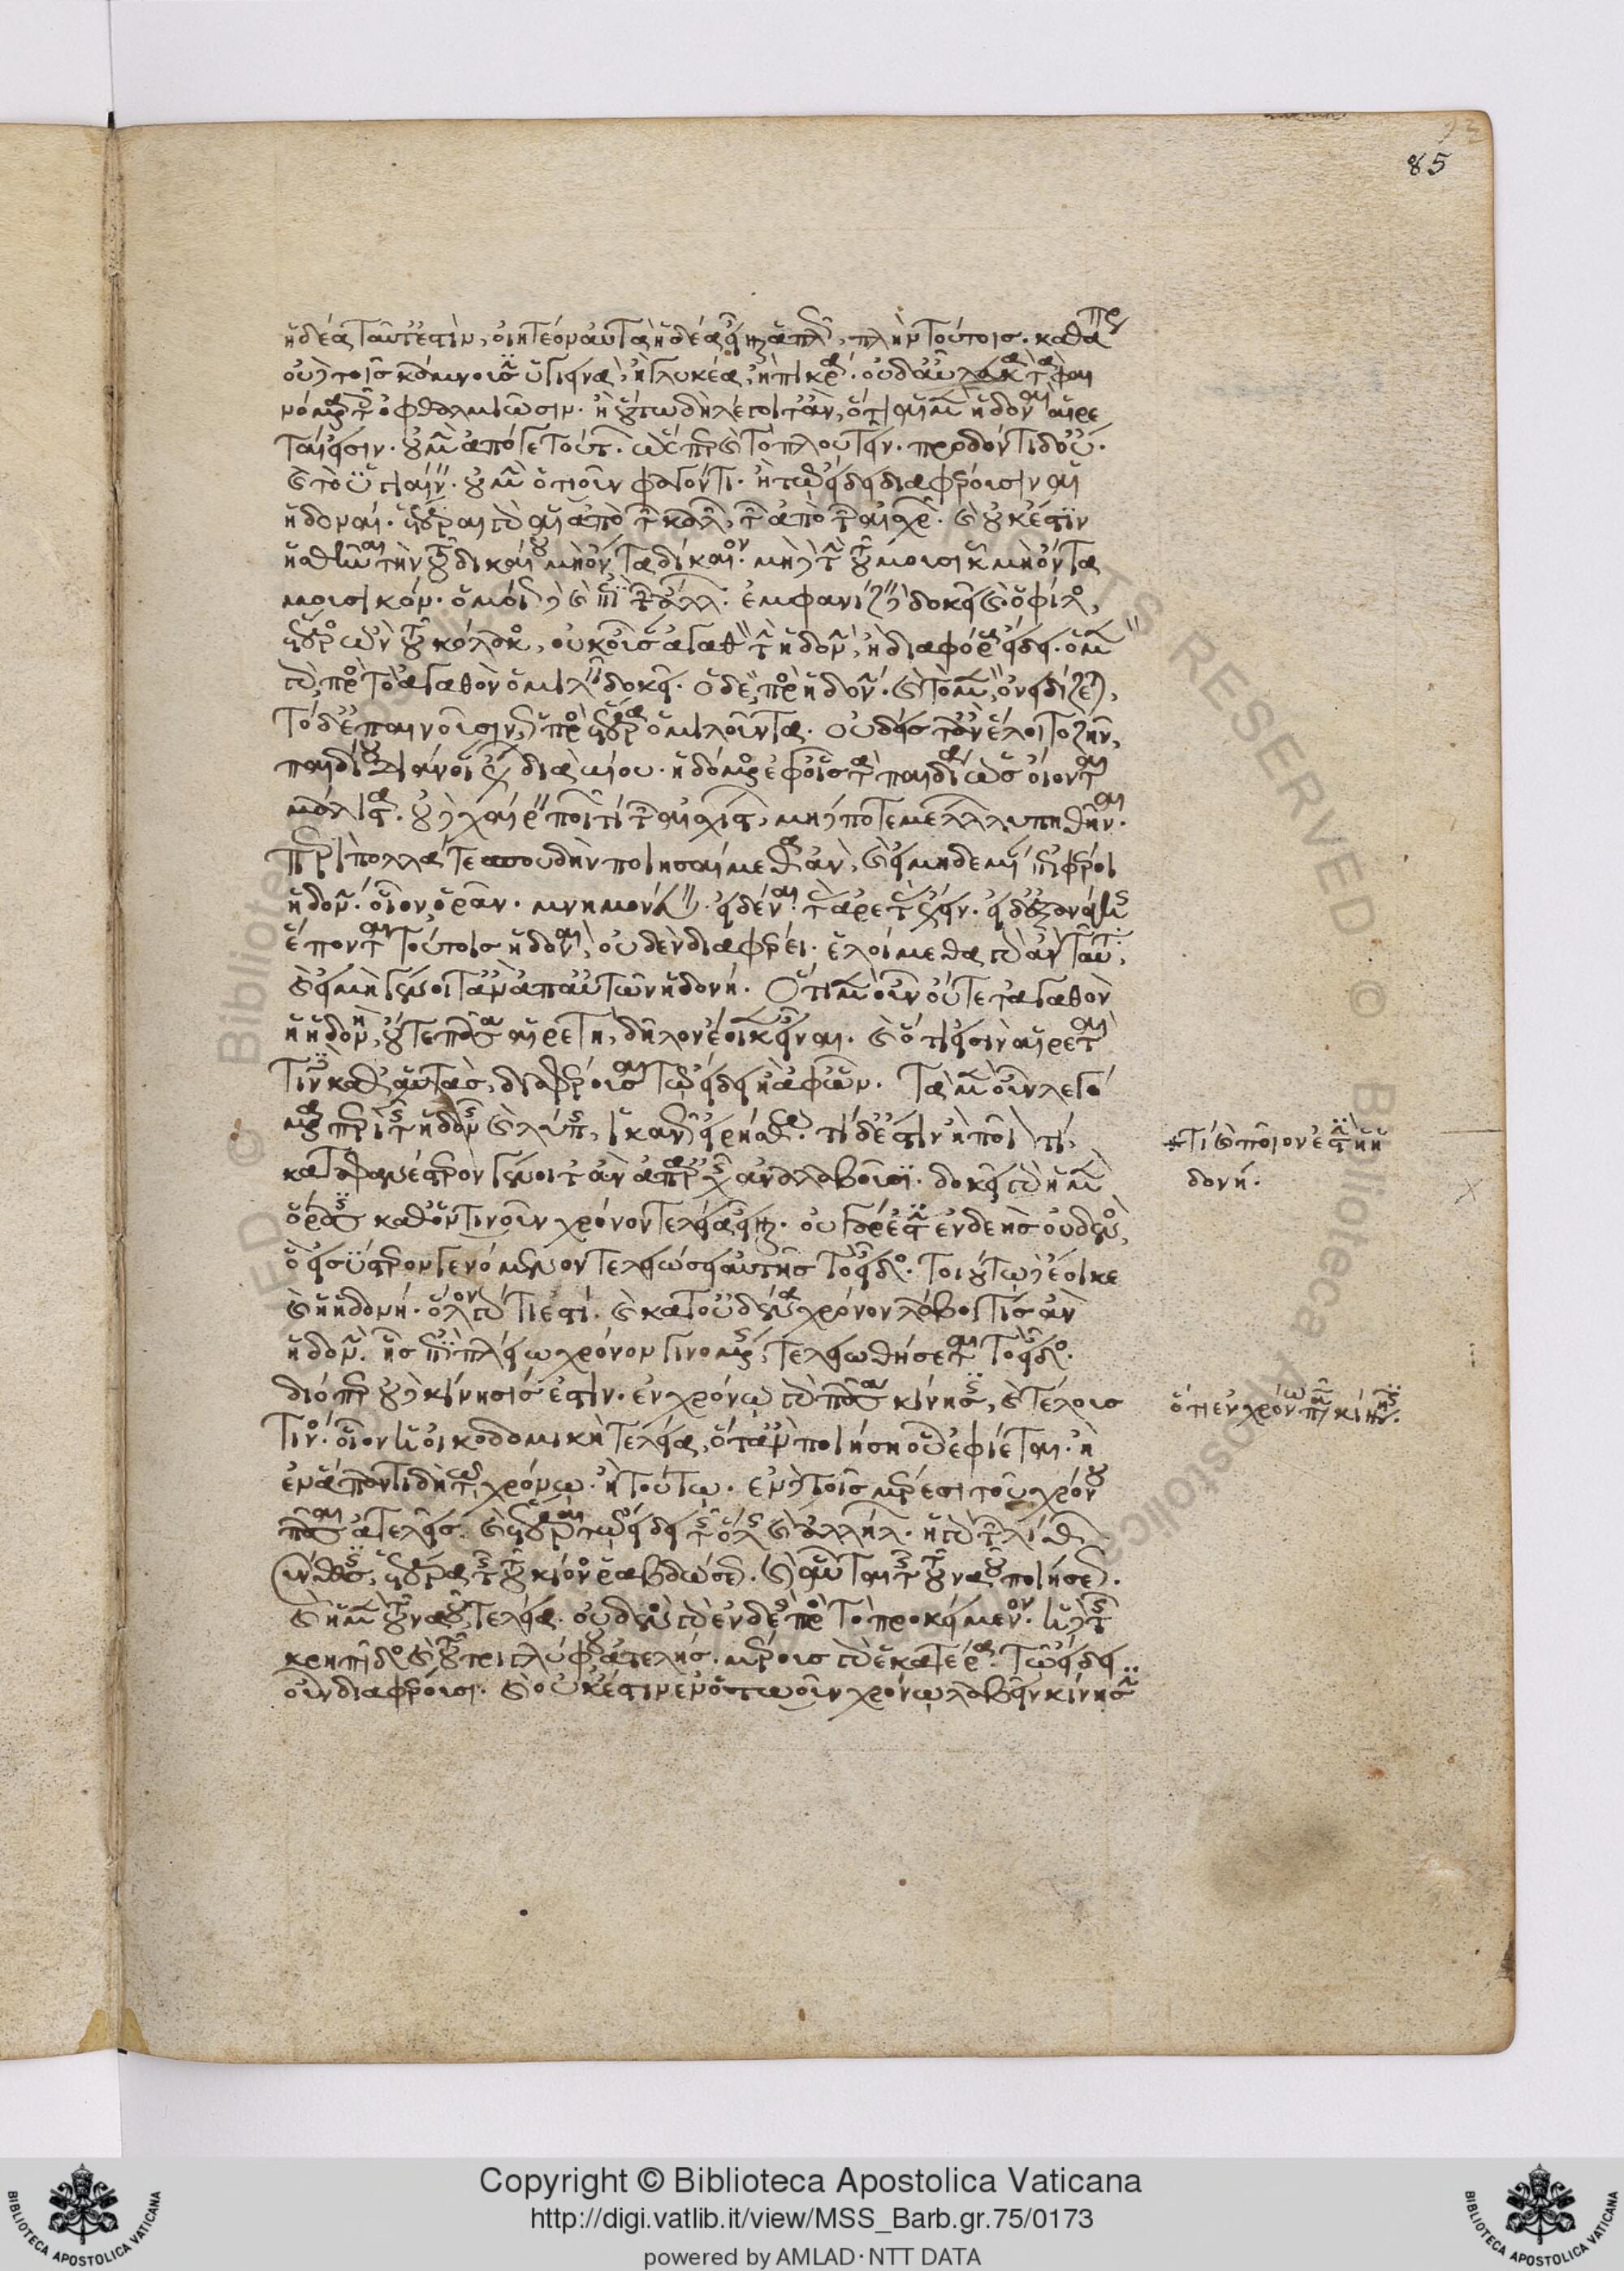 ἡδέα ταῦτ' ἐστὶν, οἰητέον αὐτὰ ἡδέα εἶναι ἁπλῶς, πλὴν τούτοις. καθάπερ
οὐδὲ τοῖς κάμνουσιν ὑγιεινὰ, ἢ γλυκέα, ἢ πικρά. οὐδ' αὖ λευκὰ τὰ φαι
νόμενα τοῖς ὀφθαλμιῶσιν. ἢ οὕτω δὴ λέγοιτ' ἂν, ὅτι αἱ μὲν ἡδοναὶ αἱρε
ταί εἰσιν. οὐ μὴν ἀπό γε τούτων. ὥσπερ καὶ τὸ πλουτεῖν. προδόντι δ' οὔ.
καὶ τὸ ὑγιαίνειν. οὐ μὴν ὁτιοῦν φαγόντι. ἢ τῷ εἴδει διαφέρουσιν αἱ
ἡδοναί. ἕτεραι γὰρ αἱ ἀπὸ τῶν καλῶν, τῶν ἀπὸ τῶν αἰσχρῶν. καὶ οὐκ ἔστιν
ἡσθῆναι τὴν τοῦ δικαίου μὴ ὄντα δίκαιον. μηδὲ τὴν τοῦ μουσικοῦ μὴ ὄντα
μουσικόν. ὁμοίως δὲ καὶ ἐπὶ τῶν ἄλλων. ἐμφανίζειν δὲ δοκεῖ καὶ ὁ φίλος,
ἕτερος ὢν τοῦ κόλακος, οὐκ οὖσαν ἀγαθὸν τὴν ἡδονὴν, ἢ διαφόρους εἴδει. ὁ μὲν
γὰρ, πρὸς τὸ ἀγαθὸν ὁμιλεῖν δοκεῖ. ὁ δὲ, πρὸς ἡδονήν. καὶ τὸ μὲν, ὀνειδίζεται,
τὸ δ' ἐπαινοῦσιν, ὡς πρὸς ἕτερα ὁμιλοῦντα. οὐδείς τ' ἂν ἕλοιτο ζῆν,
παιδίου διάνοιαν ἔχων διὰ βίου. ἡδόμενος ἐφ' οἷς τὰ παιδία ὡς οἴονται
μάλιστα. οὐδὲ χαίρειν ποιῶν τι τῶν αἰσχίστων, μηδέποτε μέλλων λυπηθῆναι.
περὶ πολλά τε σπουδὴν ποιησαίμεθα ἂν, καὶ εἰ μηδεμίαν ἐπιφέροι
ἡδονήν. οἷον ὁρᾶν. μνημονεύειν. εἰδέναι. τὰς ἀρετὰς ἔχειν. εἰ δ' ἐξ ἀνάγκης
ἕπονται τούτοις ἡδοναὶ, οὐδὲν διαφέρει. ἑλοίμεθα γὰρ ἂν ταῦτα,
καὶ εἰ μὴ γένοιτ' ἂν ἀπ' αὐτῶν ἡδονή. Ὅτι μὲν οὖν οὔτε τἀγαθὸν
ἡ ἡδονὴ, οὔτε πᾶσα αἱρετὴ, δῆλον ἔοικεν εἶναι. καὶ ὅτι εἰσὶν αἱρεταὶ
τινὲς καθ' αὑτὰς, διαφέρουσαι τῷ εἴδει ἢ ἀφ' ὧν. Τὰ μὲν οὖν λεγό
μενα περὶ τῆς ἡδονῆς καὶ λύπης, ἱκανῶς εἰρήσθω. τί δ' ἐστὶν ἢ ποῖόν τι,
καταφανέστερον γένοιτ' ἂν ἀπ' ἀρχῆς ἀναλαβοῦσιν. δοκεῖ γὰρ ἡ μὲν
ὅρασις καθ' ὁντινοῦν χρόνον τελεία εἶναι. οὐ γάρ ἐστιν ἐνδεὴς οὐδενὸς,
ὃ εἰς ὕστερον γενόμενον τελειώσει αὐτῆς τὸ εἶδος. τοιούτῳ δ' ἔοικε
καὶ ἡ ἡδονή. ὅλον γάρ τί ἐστι. καὶ κατ' οὐδένα χρόνον λάβοι τις ἂν
ἡδονήν. ἧς ἐπὶ πλείω χρόνον γινομένης, τελειωθήσεται τὸ εἶδος.
διόπερ οὐδὲ κίνησίς ἐστιν. ἐν χρόνῳ γὰρ πᾶσα κίνησις, καὶ τέλους
τινός. οἷον ἡ οἰκοδομικὴ τελεία, ὅταν ποιήσῃ οὗ ἐφίεται. ἢ
ἐν ἅπαντι δὴ τῷ χρόνῳ. ἢ τούτῳ. ἐν δὲ τοῖς μέρεσι τοῦ χρόνου
πᾶσαι ἀτελεῖς. καὶ ἕτεραι τῷ εἴδει τῆς ὅλης καὶ ἀλλήλων. ἡ γὰρ τῶν λίθων
σύνθεσις, ἑτέρα τῆς τοῦ κίονος ῥαβδώσεως. καὶ αὗται τῆς τοῦ ναοῦ ποιήσεως.
καὶ ἡ μὲν τοῦ ναοῦ, τελεία. οὐδενὸς γὰρ ἐνδεὴς πρὸς τὸ προκείμενον. ἡ δὲ τῆς
κρηπῖδος καὶ τοῦ τριγλύφου ἀτελής. μέρους γὰρ ἑκατέρα. τῷ εἴδει
οὖν διαφέρουσι. καὶ οὐκ ἔστιν ἐν ὁτῳοῦν χρόνῳ λαβεῖν κίνησιν
τί καὶ ποῖόν ἐστιν ἡ ἡ
δονή.
ὅτι ἐν χρόνῳ πᾶσα κίνησις.
85
Copyright © Biblioteca Apostolica Vaticana
http://digi.vatlib.it/view/MSS_Barb.gr.75/0173
powered by AMLAD·NTT DATA
BIBLIOTECA APOSTOLICA VATICANA
BIBLIOTECA APOSTOLICA VATICANA